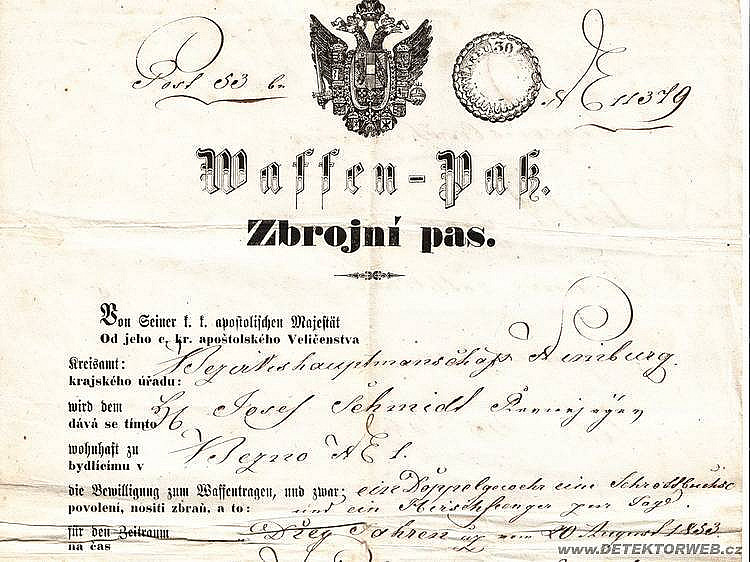 Post 53 br
30
N E 11379
Waffen-Paß.
Zbrojní pas.
Von Seiner k. k. apostolischen Majestät
Od jeho c. kr. apoštolského Veličenstva
Kreisamt: Bezirkshauptmanschaft Nimburg.
krajského úřadu:
wird dem H Josef Schmidt
dává se tímto
wohnhaft zu Bezno N E 1.
bydlícímu v
die Bewilligung zum Waffentragen, und zwar: ein Doppelgewehr ein Schrottbüchse
povolení, nositi zbraň, a to: und ein Hirschfenger zur Jagd.
für den Zeitraum Drey Jahren vom 20 August 1853.
na čas
www.DETEKTORWEB.cz